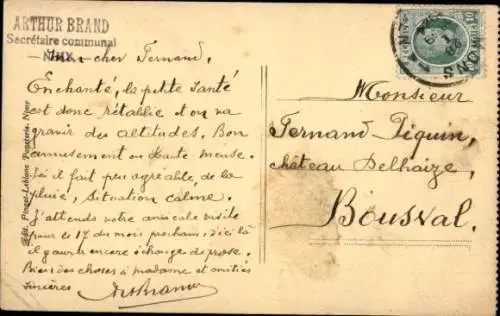 ARTHUR BRAND
Secrétaire communal
Mon cher Fernand,
Enchanté, la petite santé
est donc rétablie et on va
gravir des altitudes. Bon
amusement en Haute Meuse.
Ici il fait peu agréable, de la
pluie, situation calme.
J'attends votre amicale visite
pour le 17 du mois prochain, d'ici là
il y aura encore échange de prose.
Bien des choses à madame et amitiés
sincères.
Monsieur
Fernand Piquin,
château Delhaize,
Bousval.
MONS
Edit. Picogt-Leblanc Papeterie, Nimy